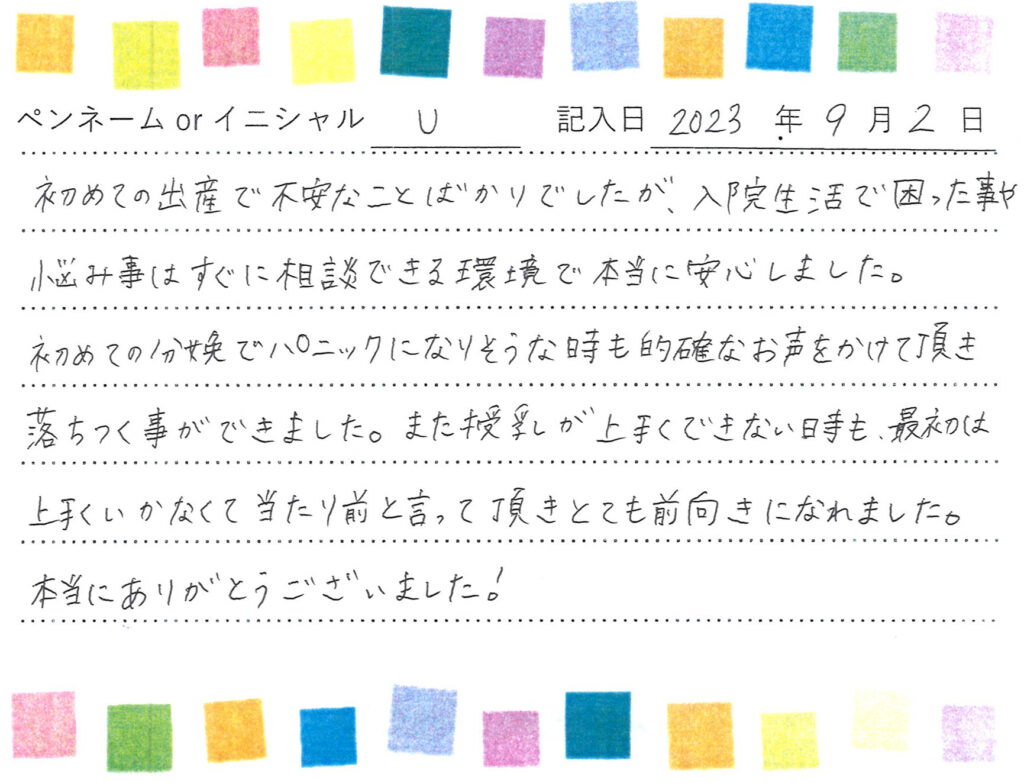 ペンネーム or イニシャル U 記入日 2023 年 9 月 2 日
初めての出産で不安なことばかりでしたが、入院生活で困った事や
悩み事はすぐに相談できる環境で本当に安心しました。
初めての分娩でパニックになりそうな時も的確なお声をかけて頂き
落ちつく事ができました。また授乳が上手くできない時も、最初は
上手くいかなくて当たり前と言って頂きとても前向きになれました。
本当にありがとうございました!